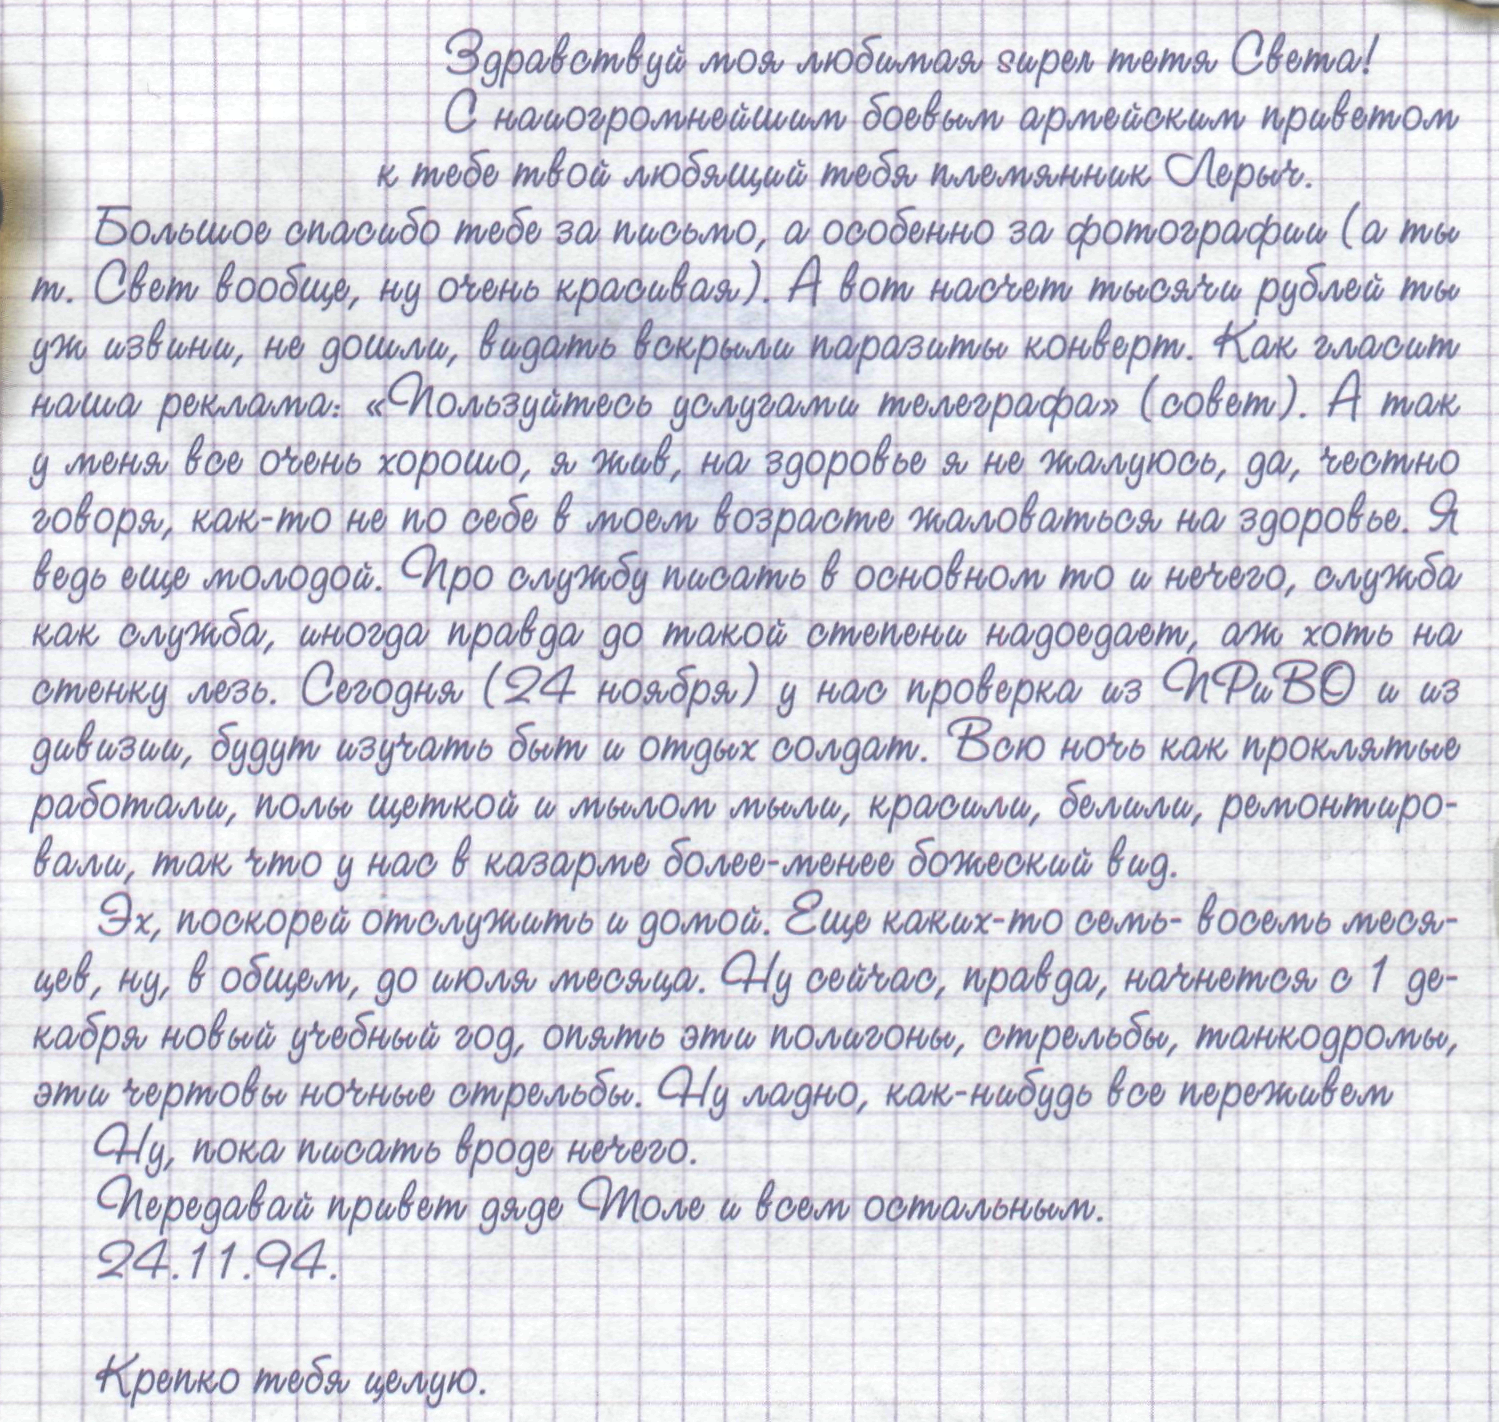 Здравствуй моя любимая super тетя Света!
С наиогромнейшим боевым армейским приветом
к тебе твой любящий тебя племянник Лерыч.
Большое спасибо тебе за письмо, а особенно за фотографии (а ты
т. Свет вообще, ну очень красивая). А вот насчет тысячи рублей ты
уж извини, не дошли, видать вскрыли паразиты конверт. Как гласит
наша реклама: «Пользуйтесь услугами телеграфа» (совет). А так
у меня все очень хорошо, я жив, на здоровье я не жалуюсь, да, честно
говоря, как-то не по себе в моем возрасте жаловаться на здоровье. Я
ведь еще молодой. Про службу писать в основном то и нечего, служба
как служба, иногда правда до такой степени надоедает, аж хоть на
стенку лезь. Сегодня (24 ноября) у нас проверка из ПРиВО и из
дивизии, будут изучать быт и отдых солдат. Всю ночь как проклятые
работали, полы щеткой и мылом мыли, красили, белили, ремонтиро-
вали, так что у нас в казарме более-менее божеский вид.
Эх, поскорей отслужить и домой. Еще каких-то семь- восемь меся-
цев, ну, в общем, до июля месяца. Ну сейчас, правда, начнется с 1 де-
кабря новый учебный год, опять эти полигоны, стрельбы, танкодромы,
эти чертовы ночные стрельбы. Ну ладно, как-нибудь все переживем
Ну, пока писать вроде нечего.
Передавай привет дяде Толе и всем остальным.
24.11.94.
Крепко тебя целую.